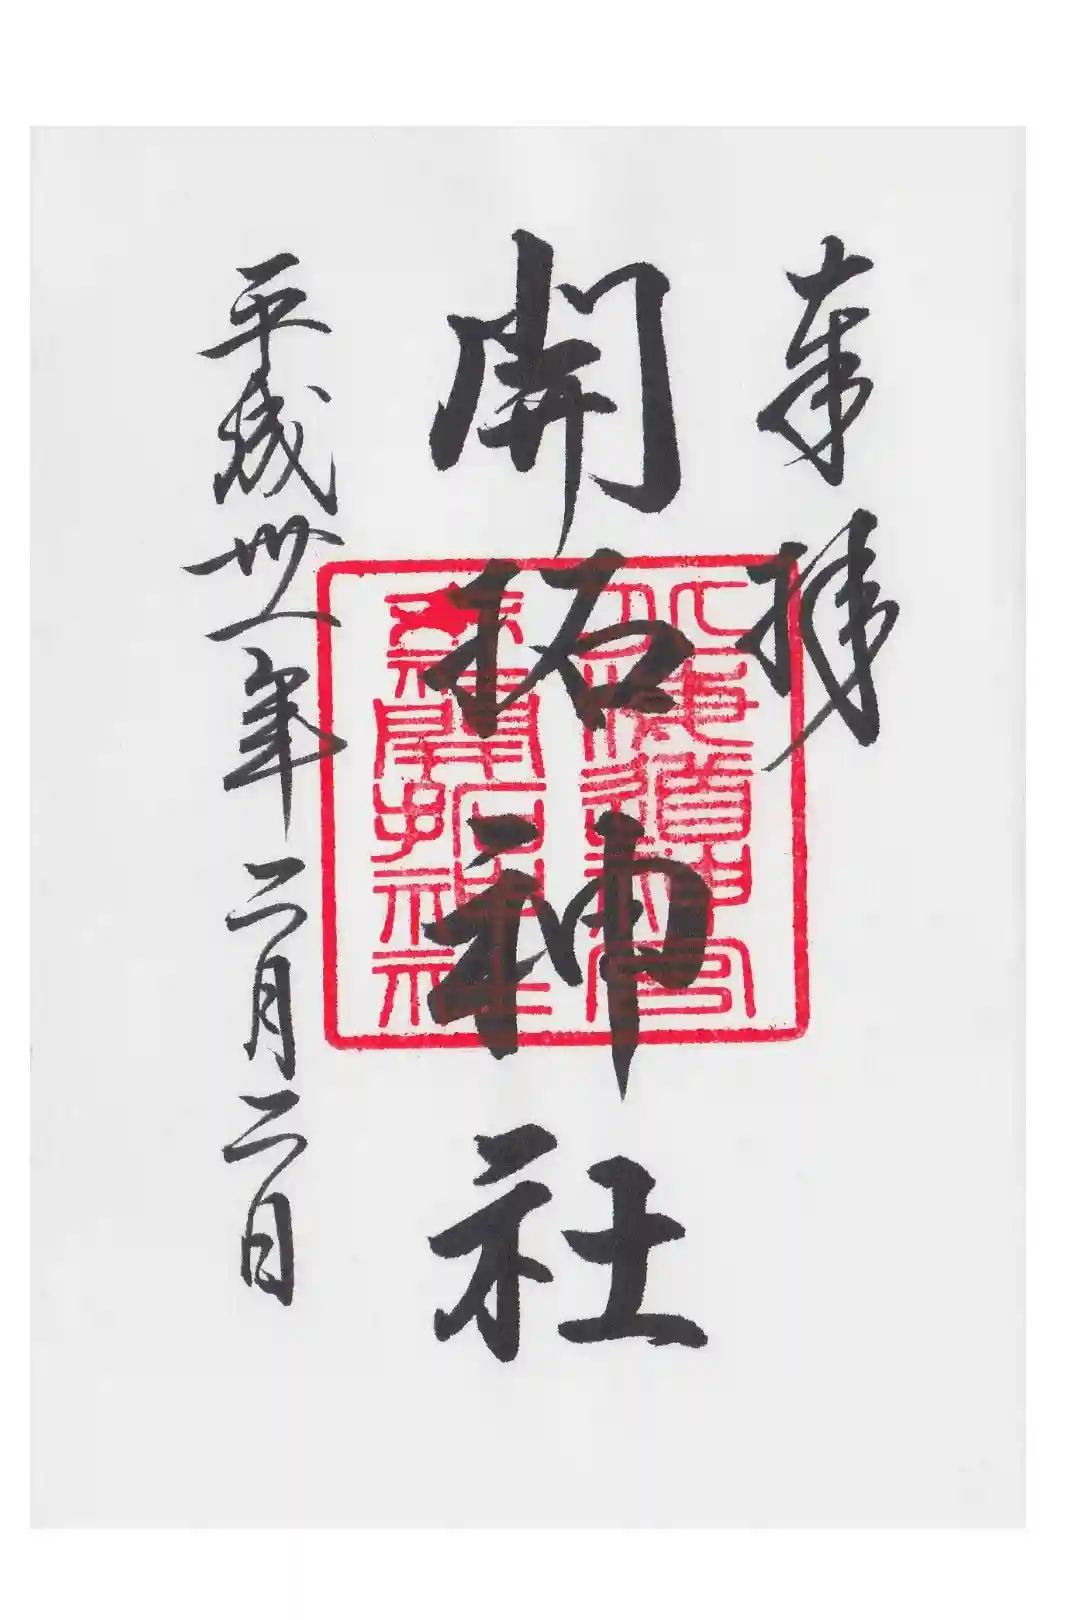 奉拝
開拓神社
北海道神宮
開拓神社
平成卅一年二月二日